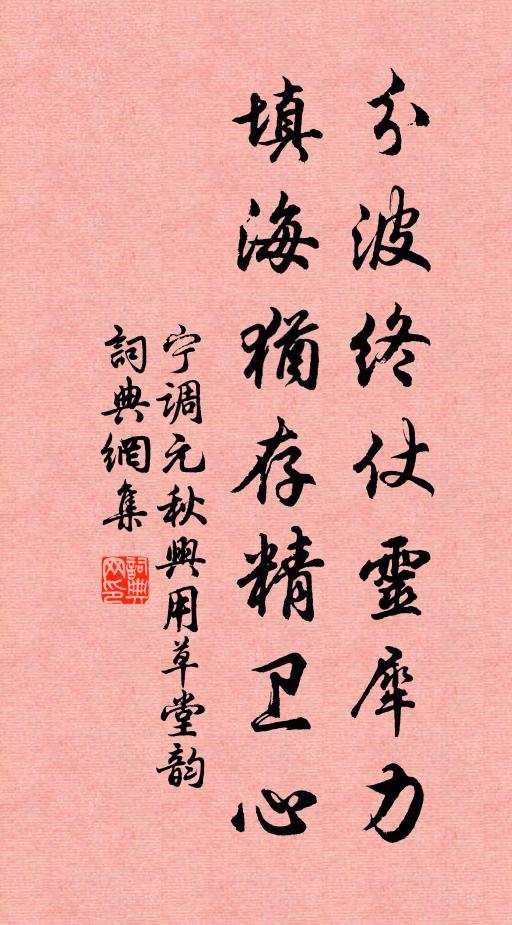 分波终仗靈犀力
填海猶存精卫心
宁调元秋興用草堂韵
詞典網集
詞典网印